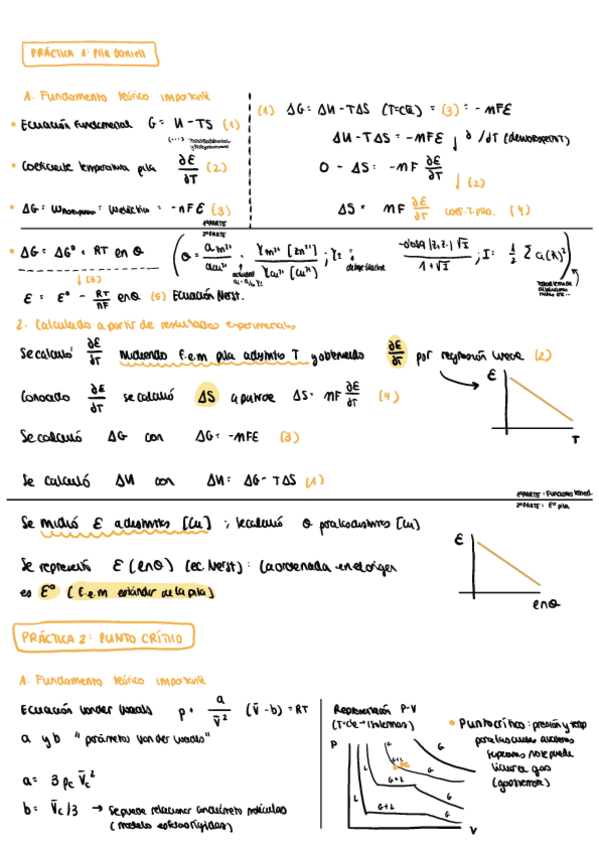 PRÁCTICA 1: Pila Daniell
1. Fundamento teórico importante
• Ecuación fundamental G = U - TS (1)
• Coeficiente temperatura pila ∂E/∂T (2)
• ΔG = = -nFE (3)
(1) ΔG = ΔU - TΔS (T=cte) = (3) = -nFE
ΔU - TΔS = -nFE ↓ ∂/∂T
0 - ΔS = -nF ∂E/∂T
↓ (2)
ΔS = nF ∂E/∂T coef. T. pila. (4)
1ª PARTE
2ª PARTE
• ΔG = ΔG° + RT ln Q (Q = a Zn²⁺ / a Cu²⁺ = γ Zn²⁺ [Zn²⁺] / γ Cu²⁺ [Cu²⁺] ; γ± = √I / 1+√I ; I = 1/2 Σ )
↓ (3)
E = E° - RT/nF ln Q (5) Ecuación Nerst.
2. Calculado a partir de resultados experimentales
Se calculó ∂E/∂T midiendo f.e.m pila a distinta T y obteniendo ∂E/∂T por regresión lineal (2)
Conocido ∂E/∂T se calculó ΔS a partir de ΔS = nF ∂E/∂T (4)
E
T
Se calculó ΔG con ΔG = -nFE (3)
Se calculó ΔU con ΔU = ΔG - TΔS (1)
1ª PARTE:
2ª PARTE: E° pila
Se midió E a distintas [Cu] ; se calculó Q para las distintas [Cu]
Se representó E (lnQ) (ec. Nerst): la ordenada en el origen
es E° (f.e.m estándar de la pila)
E
lnQ
PRÁCTICA 2: PUNTO CRÍTICO
1. Fundamento teórico importante
Ecuación Van der Waals p + a/V̄² (V̄ - b) = RT
a y b "parámetros Van der Waals"
a = 3 pc V̄c²
b = V̄c/3 → Se puede relacionar con diámetro moléculas
(modelo esferas rígidas)
Representación P-V
(T=cte → Isotermas)
P
L
G+L
G
L
G+L
G
L
G+L
G
V
• Punto crítico: presión y temp
para las cuales a valores
superiores no se puede
licuar el gas